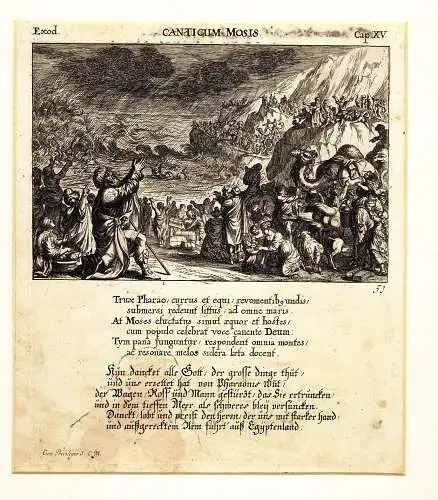 Exod. CANTICUM MOSIS Cap. XV
51
Trux Pharao, currus et equi, revomentibꝰ undis,
submersi redeunt littus, ad omne maris.
At Moses eluctatus simul æquor et hostes,
cum populo celebrat voce canente Deum.
Tym pana funguntur, respondent omnia montes,
ac resonare melos sidera læta docent.
Nun dancket alle Gott, der grosse dinge thut,
und uns errettet hat von Pharaonis Wut,
der Wagen, Roß und Mann gestürtzt, das Sie ertruncken,
und in dem tieffen Meer als schweres bley versuncken.
Danckt, lobt und preist den herren, der uns mit starker hand,
und außgerecktem Arm führt auß Egÿptenland.
Cum Privilegio S. C. M.